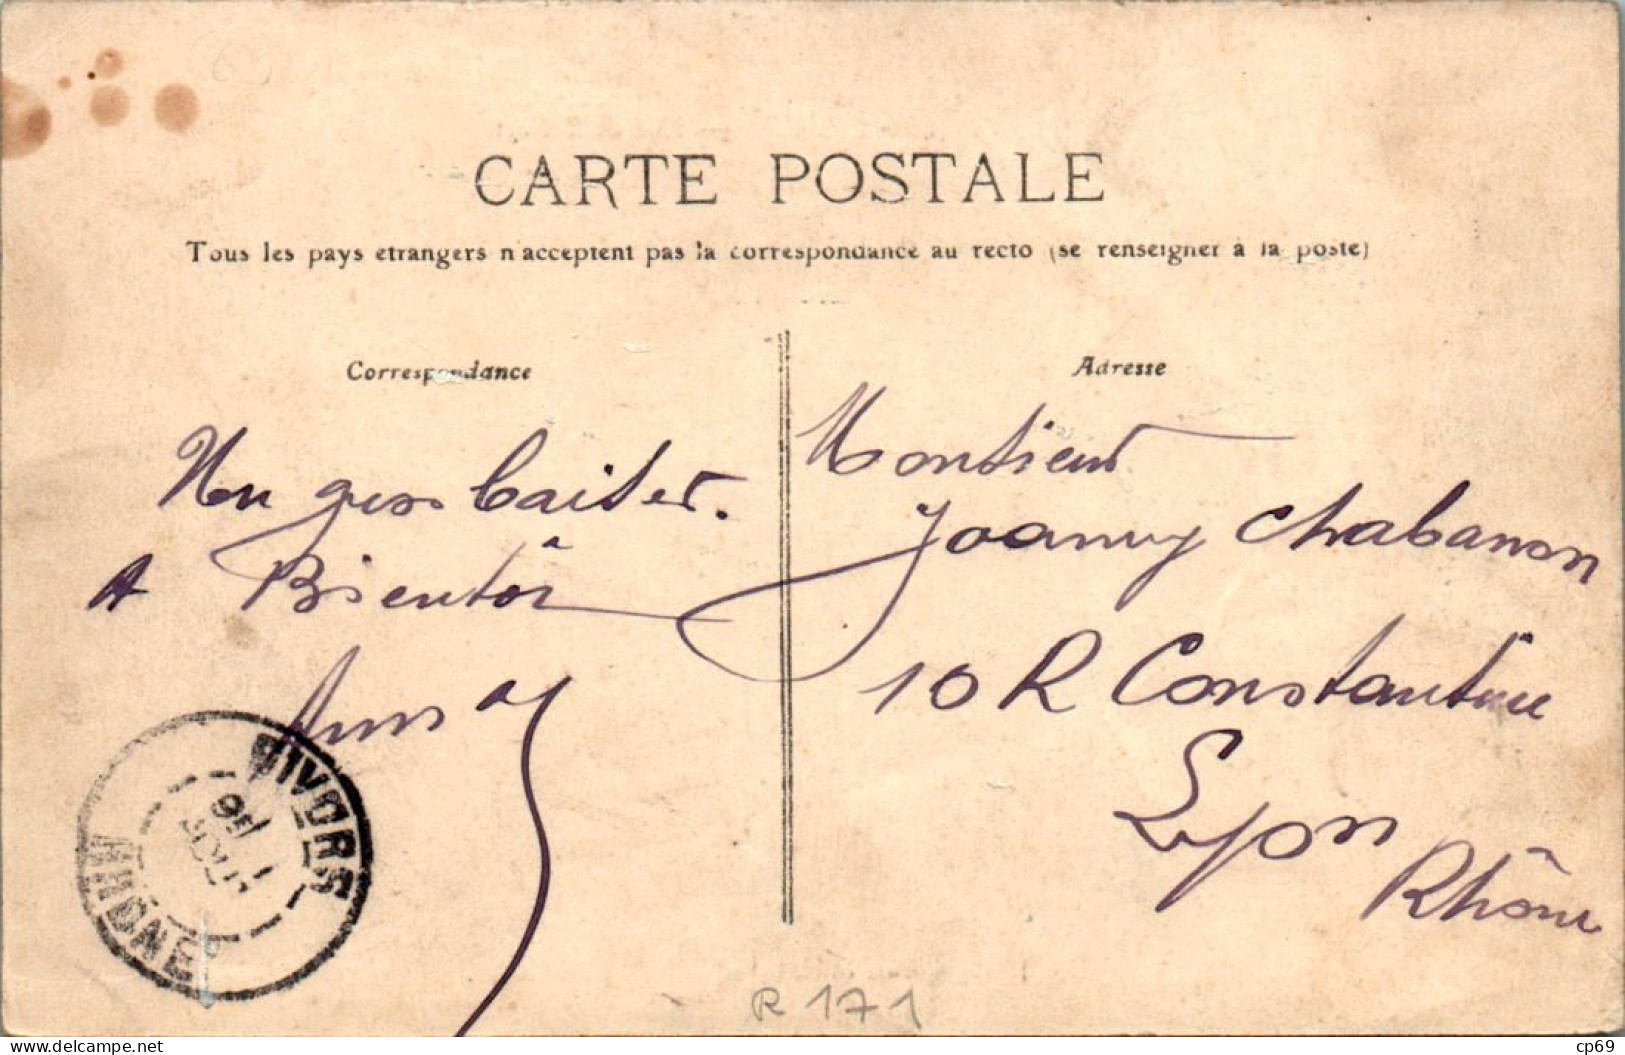 CARTE POSTALE
Tous les pays étrangers n'acceptent pas la correspondance au recto (se renseigner à la poste)
Correspondance
Un gros baiser.
A Bientôt
Anna
GIVORS
RHONE
Adresse
Monsieur
Joanny Chabanon
10 R Constantine
Lyon
Rhône
R 171
www.delcampe.net
cp69